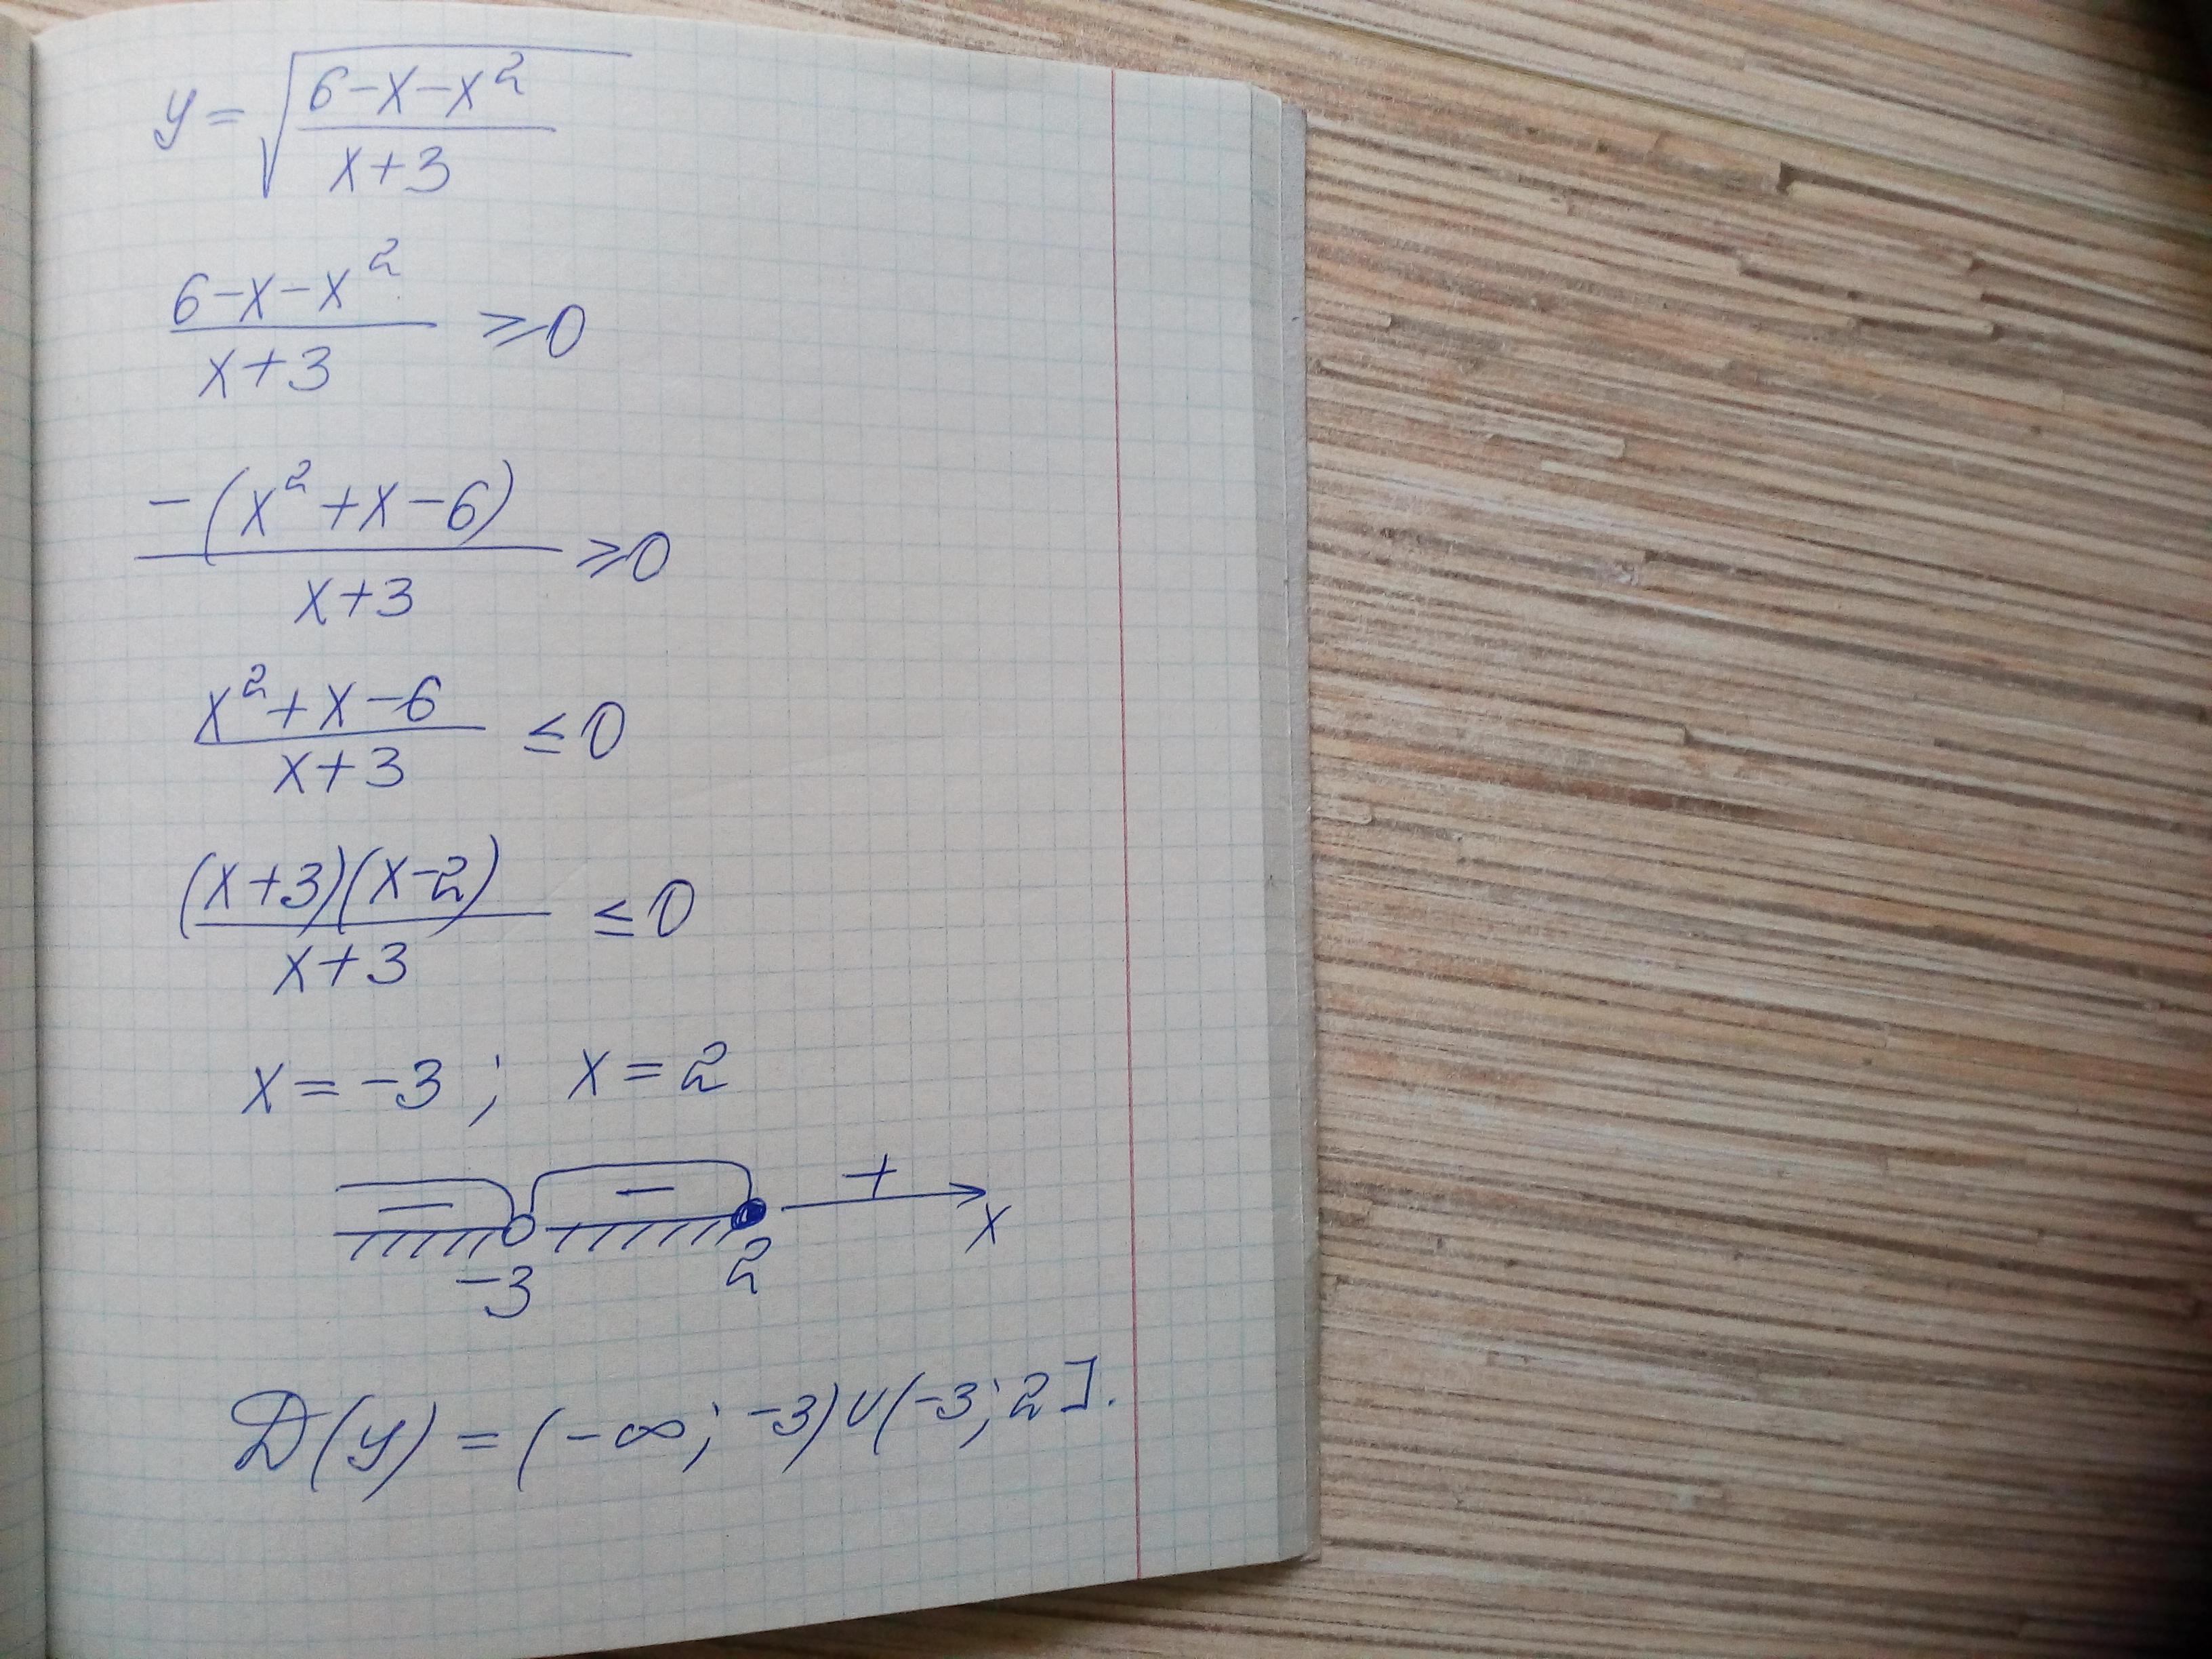 y = √((6-x-x²)/(x+3))
(6-x-x²)/(x+3) ⩾ 0
(-(x²+x-6))/(x+3) ⩾ 0
(x²+x-6)/(x+3) ≤ 0
((x+3)(x-2))/(x+3) ≤ 0
x = -3 ; x = 2
− − + x
-3 2
D(y) = (-∞; -3)∪(-3; 2].